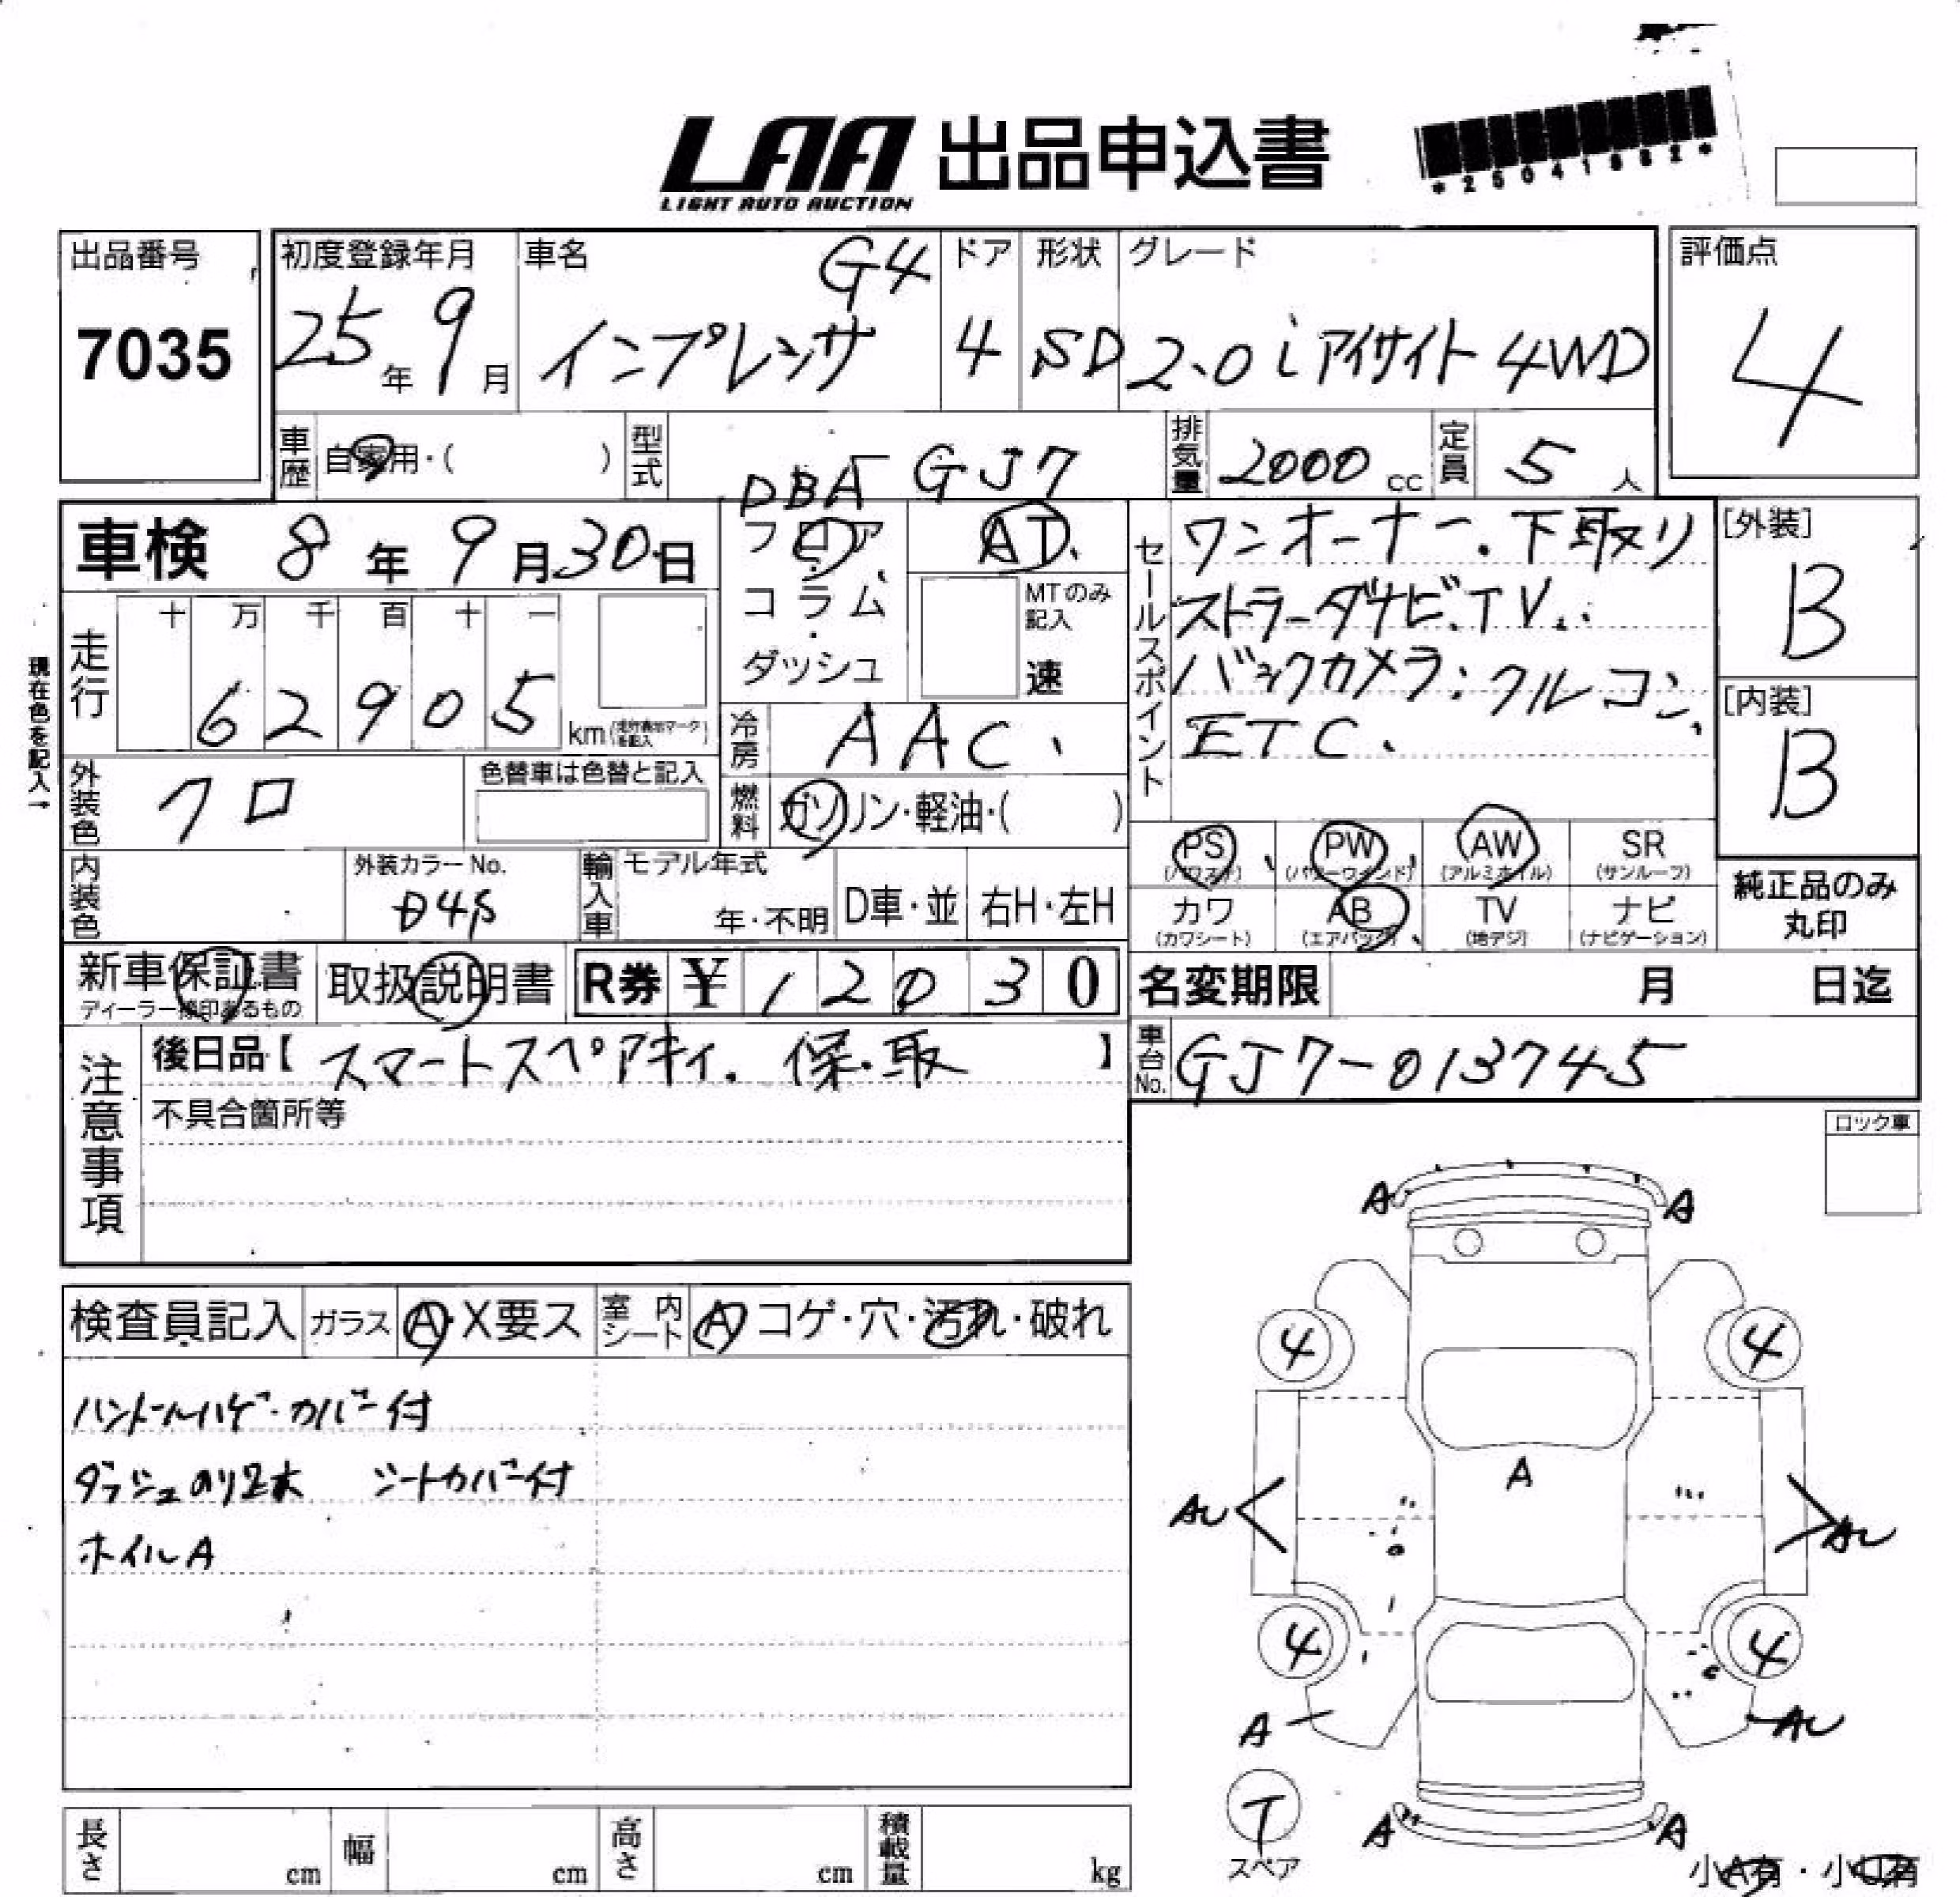 LAA 出品申込書
LIGHT AUTO AUCTION
*25041882*
出品番号
7035
初度登録年月
25年 9月
車名
G4
インプレッサ
ドア
4
形状
SD
グレード
2.0i アイサイト 4WD
評価点
4
車歴 自家用・( )
型式 DBA GJ7
排気量 2000 cc
定員 5 人
車検 8年 9月 30日
フロア・
コラム・
ダッシュ
AT.
MTのみ記入
速
セールスポイント
ワンオーナー.下取り
ストラーダナビ.TV.
バックカメラ.クルコン.
ETC.
[外装]
B
[内装]
B
現在色を記入→
走行
十 万 千 百 十 一
6 2 9 0 5 km(走行表示マークを記入)
冷房 AAC.
外装色 クロ
色替車は色替と記入
燃料 ガソリン・軽油・( )
内装色
外装カラーNo.
D4S
輸入車
モデル年式
年・不明
D車・並
右H・左H
PS (パワステ)
PW (パワーウインド)
AW (アルミホイル)
SR (サンルーフ)
カワ (カワシート)
AB (エアバッグ)
TV (地デジ)
ナビ (ナビゲーション)
純正品のみ丸印
新車保証書
取扱説明書
R券 ¥ 12030
名変期限 月 日迄
注意事項
後日品【スマートスペアキィ. 保.取】
不具合箇所等
車台No. GJ7-013745
ロック車
検査員記入
ガラス A・X要ス
室内シート A コゲ・穴・汚れ・破れ
ハンドルハゲ・カバー付
ダッシュのり2ホ シートカバー付
ホイルA
A A
4 4
A
AU AU
4 4
A AU
A A
T
スペア
小A有・小U有
長さ cm
幅 cm
高さ cm
積載量 kg